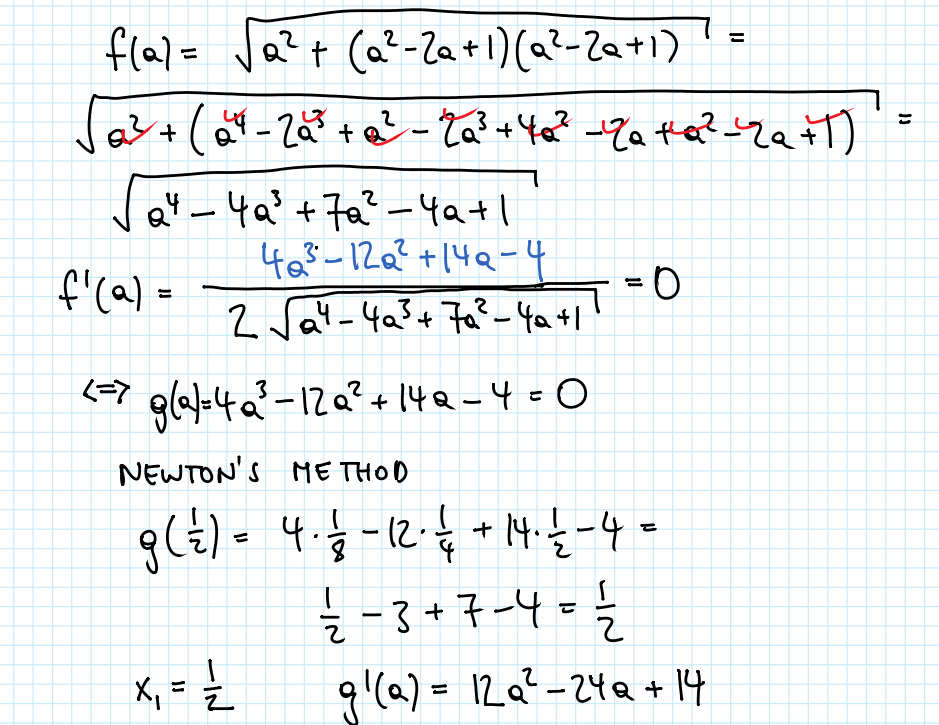 f(a) = √(a² + (a²-2a+1)(a²-2a+1)) =
√(a² + (a⁴ - 2a³ + a² - 2a³ + 4a² - 2a + a² - 2a + 1)) =
√(a⁴ - 4a³ + 7a² - 4a + 1)
f'(a) = (4a³ - 12a² + 14a - 4) / (2√(a⁴ - 4a³ + 7a² - 4a + 1)) = 0
<=> g(a) = 4a³ - 12a² + 14a - 4 = 0
NEWTON'S METHOD
g(1/2) = 4·1/8 - 12·1/4 + 14·1/2 - 4 =
1/2 - 3 + 7 - 4 = 1/2
x₁ = 1/2 g'(a) = 12a² - 24a + 14